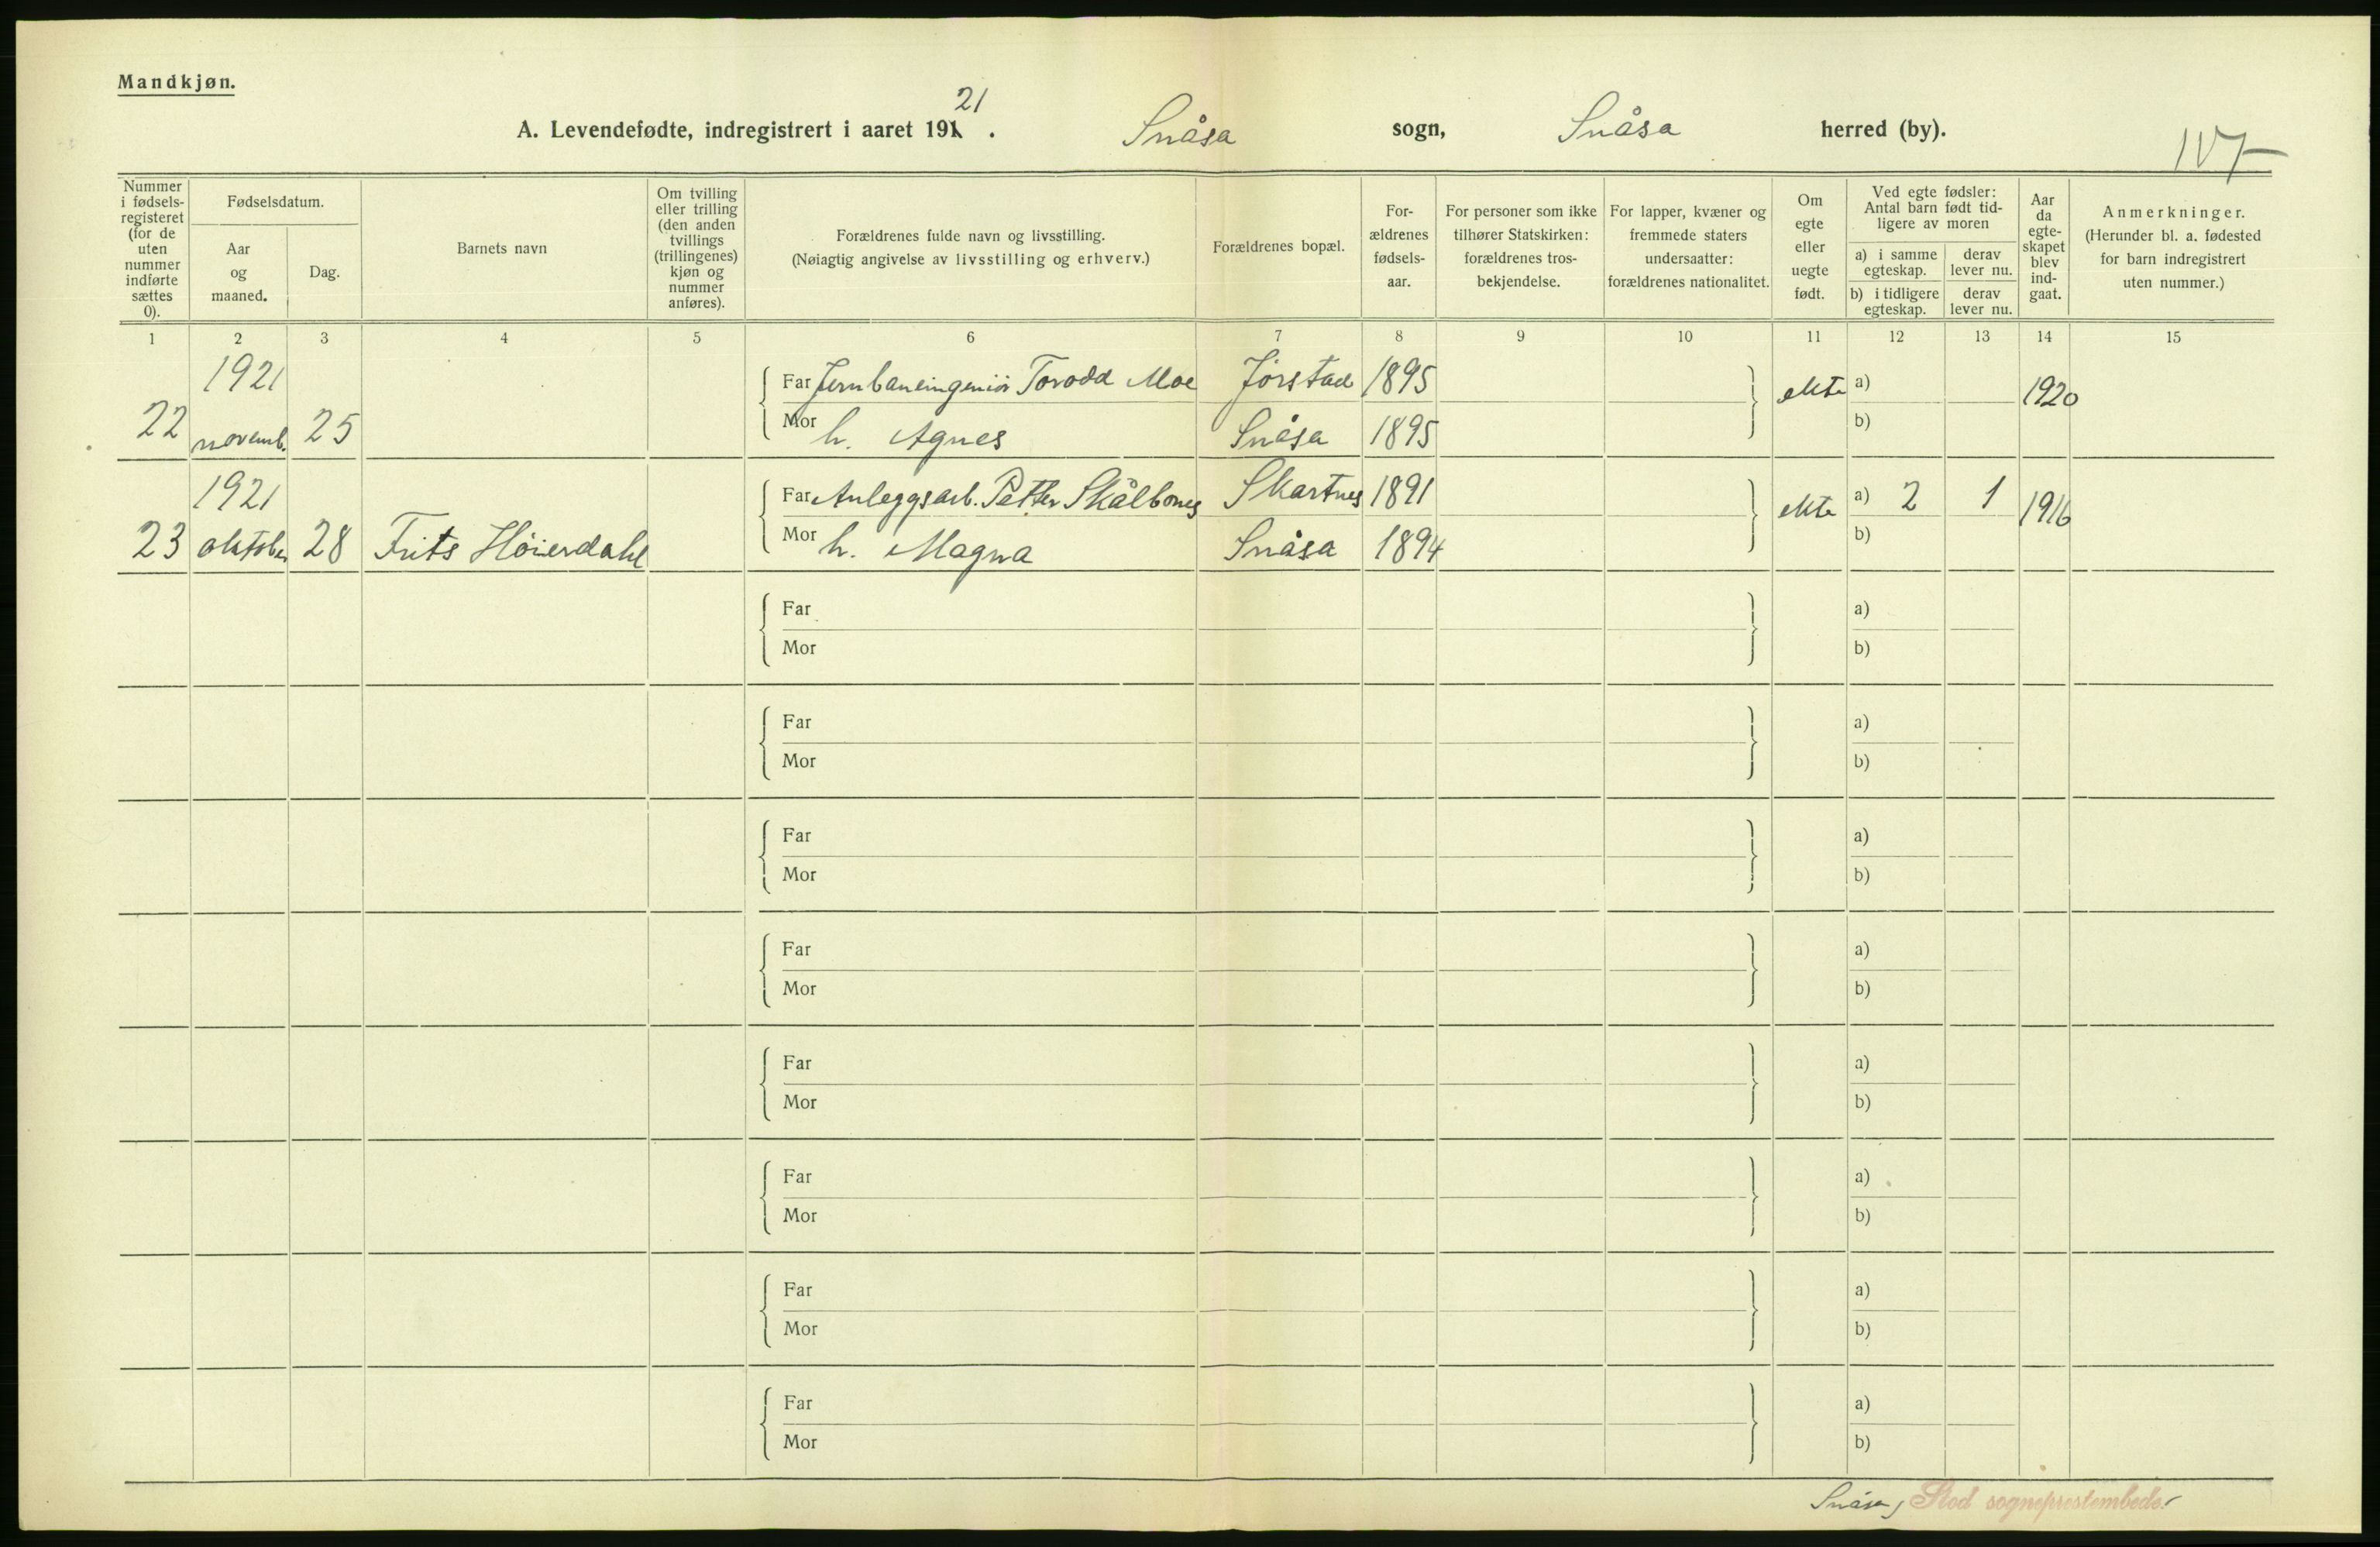 Mandkjøn.
21
A. Levendefødte, indregistrert i aaret 191 . Snåsa sogn, Snåsa herred (by).
Nummer i fødsels-registeret (for de uten nummer indførte sættes 0).
Fødselsdatum.
Aar og maaned.
Dag.
Barnets navn
Om tvilling eller trilling (den anden tvillings (trillingenes) kjøn og nummer anføres).
Forældrenes fulde navn og livsstilling.
(Nøiagtig angivelse av livsstilling og erhverv.)
Forældrenes bopæl.
For-ældrenes fødsels-aar.
For personer som ikke tilhører Statskirken: forældrenes tros-bekjendelse.
For lapper, kvæner og fremmede staters undersaatter: forældrenes nationalitet.
Om egte eller uegte født.
Ved egte fødsler: Antal barn født tid-ligere av moren
a) i samme egteskap.
derav lever nu.
b) i tidligere egteskap.
derav lever nu.
Aar da egte-skapet blev ind-gaat.
Anmerkninger.
(Herunder bl. a. fødested for barn indregistrert uten nummer.)
1 2 3 4 5 6 7 8 9 10 11 12 13 14 15
1921 Far Jernbaneingeniør Torodd Moe Jørstad 1895 ekte a) 1920
22 novemb. 25 Mor h. Agnes Snåsa 1895 b)
1921 Far Anleggsarb. Petter Skålbones Skartnes 1891 ekte a) 2 1 1916
23 oktober 28 Frits Höierdahl Mor h. Magna Snåsa 1894 b)
Far a)
Mor b)
Far a)
Mor b)
Far a)
Mor b)
Far a)
Mor b)
Far a)
Mor b)
Far a)
Mor b)
Far a)
Mor b)
Far a)
Mor b)
Snåsa, Stod sogneprestembede.